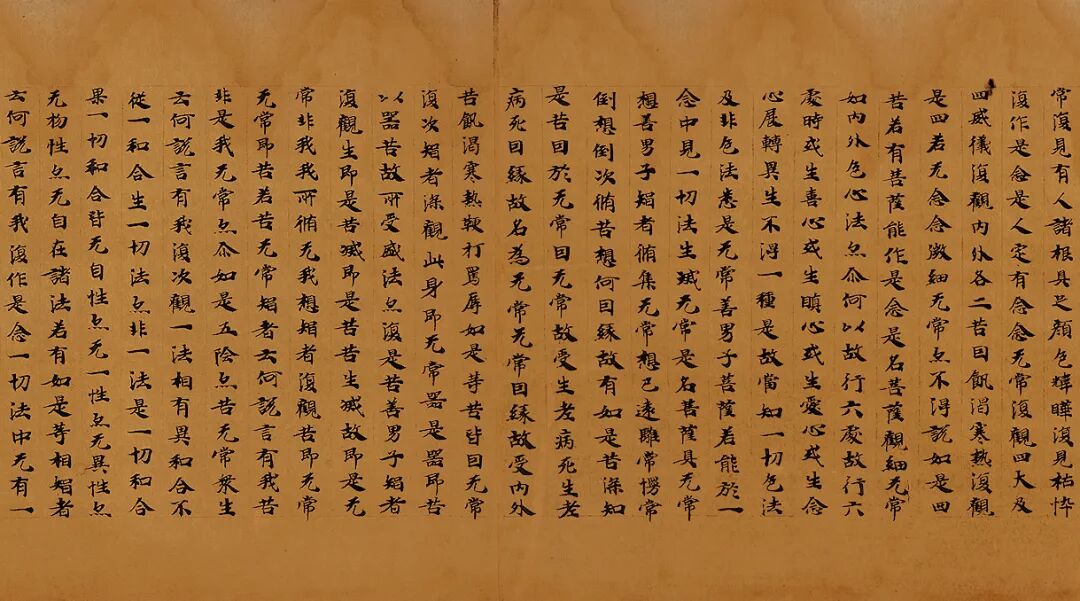 常復見有人諸根具足顏色暐曄復見枯悴
復作是念是人定有念念无常復觀四大及
四威儀復觀內外各二苦因飢渴寒熱復觀
是四若无念念微細无常点不得說如是四
苦若有菩薩能作是念是名菩薩觀細无常
如內外色心法点尒何以故行六處故行六
處時或生喜心或生瞋心或生愛心或生念
心展轉異生不得一種是故當知一切色法
及非色法悉是无常善男子菩薩若能於一
念中見一切法生滅无常是名菩薩具无常
想善男子智者脩集无常想已遠離常慢常
倒想倒次脩苦想何因緣故有如是苦深知
是苦因於无常因无常故受生老病死生老
病死因緣故名為无常无常因緣故受內外
苦飢渴寒熱鞭打罵辱如是等苦皆因无常
復次智者深觀此身即无常器是器即苦
以器苦故所受盛法点復是苦善男子智者
復觀生即是苦滅即是苦苦生滅故即是无
常非我我所脩无我想智者復觀苦即无常
无常即苦若苦无常智者云何說言有我苦
非是我无常点尒如是五陰点苦无常衆生
云何說言有我復次觀一法相有異和合不
從一和合生一切法点非一法是一切和合
果一切和合皆无自性点无一性点无異性点
无物性点无自在諸法若有如是等相智者
云何說言有我復作是念一切法中无有一